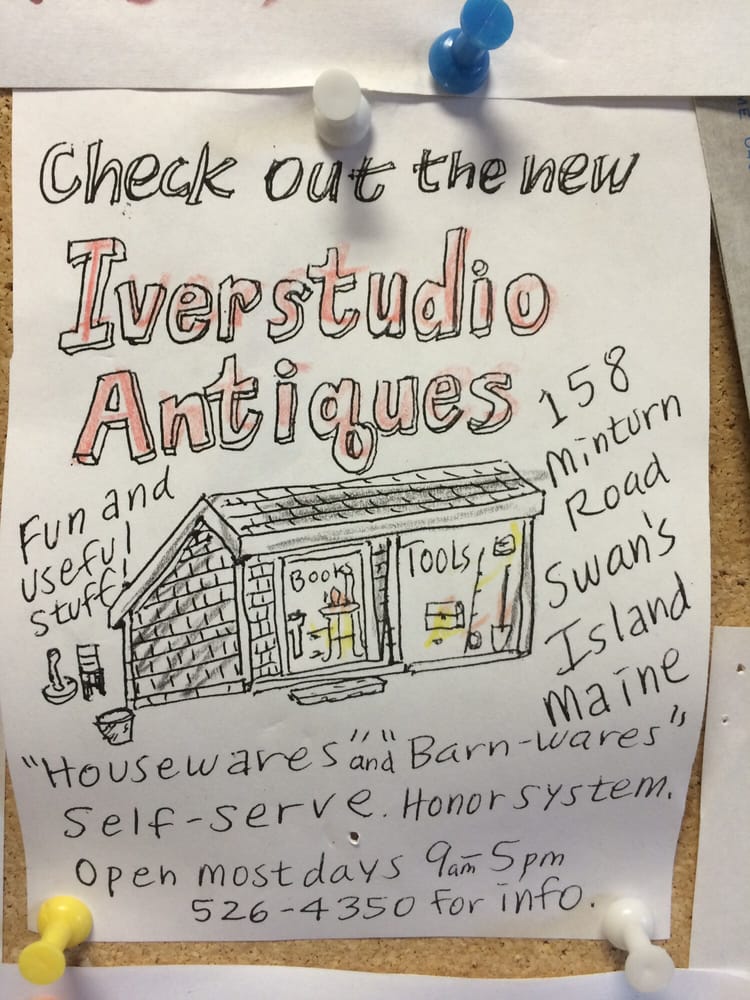 Check out the new
Iverstudio
Antiques
158
Minturn
Road
Swan's
Island
Maine
Fun and
useful
stuff!
Books
TOOLS
"Housewares" and "Barn-wares"
Self-serve. Honor system.
Open most days 9am 5pm
526-4350 for info.